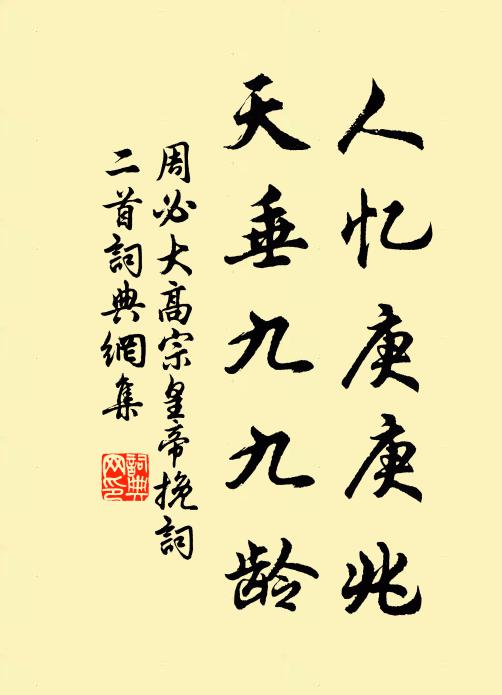 人忆庚庚兆
天垂九九龄
周必大高宗皇帝挽詞
二首詞典網集
詞典网印